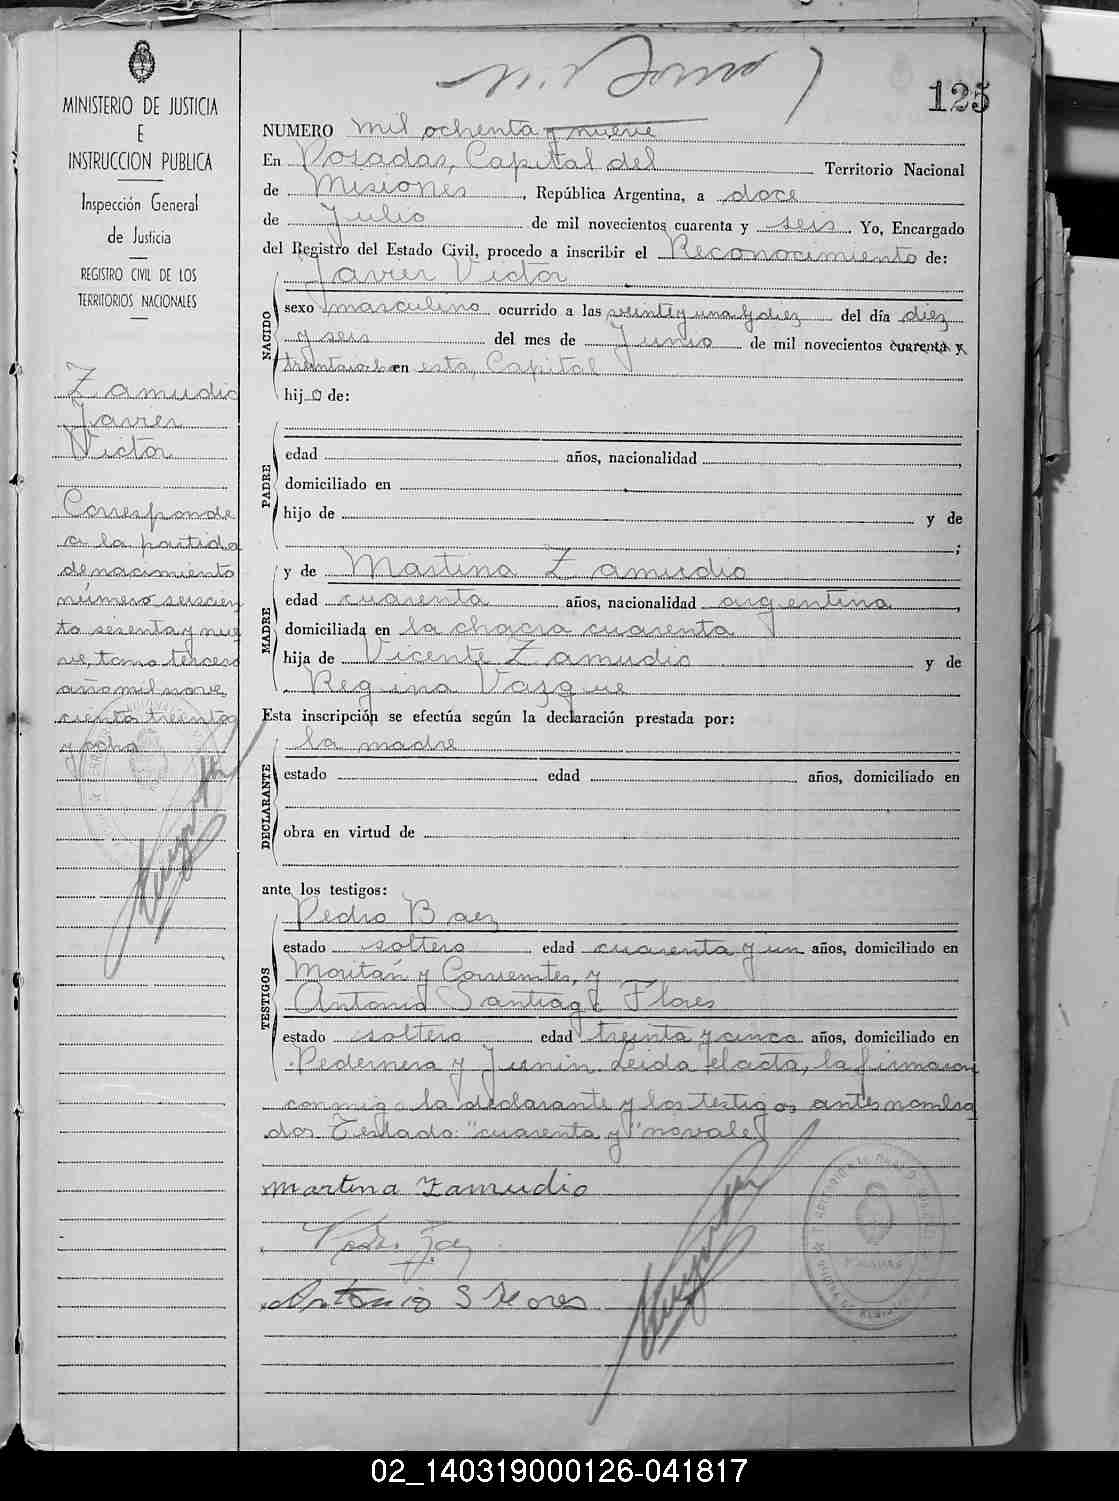 125
MINISTERIO DE JUSTICIA
E
INSTRUCCION PUBLICA
Inspección General
de Justicia
REGISTRO CIVIL DE LOS
TERRITORIOS NACIONALES
Zamudio
Javier
Victor
Corresponde
a la partida
de nacimiento
número seiscien
to sesenta y nue
ve, tomo tercero
año mil nove
ciento treinta
y ocho
NUMERO mil ochenta y nueve
En Posadas, Capital del Territorio Nacional
de Misiones, República Argentina, a doce
de Julio de mil novecientos cuarenta y seis. Yo, Encargado
del Registro del Estado Civil, procedo a inscribir el Reconocimiento de:
Javier Victor
NACIDO
sexo masculino ocurrido a las veinte y una y diez del día diez
y seis del mes de Junio de mil novecientos cuarenta y
treintaiocho en esta Capital
hijo de:
PADRE
edad años, nacionalidad ,
domiciliado en
hijo de y de
;
MADRE
y de Martina Zamudio
edad cuarenta años, nacionalidad argentina,
domiciliada en la chacra cuarenta
hija de Vicente Zamudio y de
Regina Vazque
Esta inscripción se efectúa según la declaración prestada por:
la madre
DECLARANTE
estado edad años, domiciliado en
obra en virtud de
ante los testigos:
TESTIGOS
Pedro Baez
estado soltero edad cuarenta y un años, domiciliado en
y Corrientes, y
Antonio Santiago Flores
estado soltero edad treinta y cinco años, domiciliado en
Pedernera y Junin. Leida el acta, la firmaron
conmigo la declarante y los testigos antes nombra
dos Testado: "cuarenta y" no vale
Martina Zamudio
Antonio S Flores
02_140319000126-041817